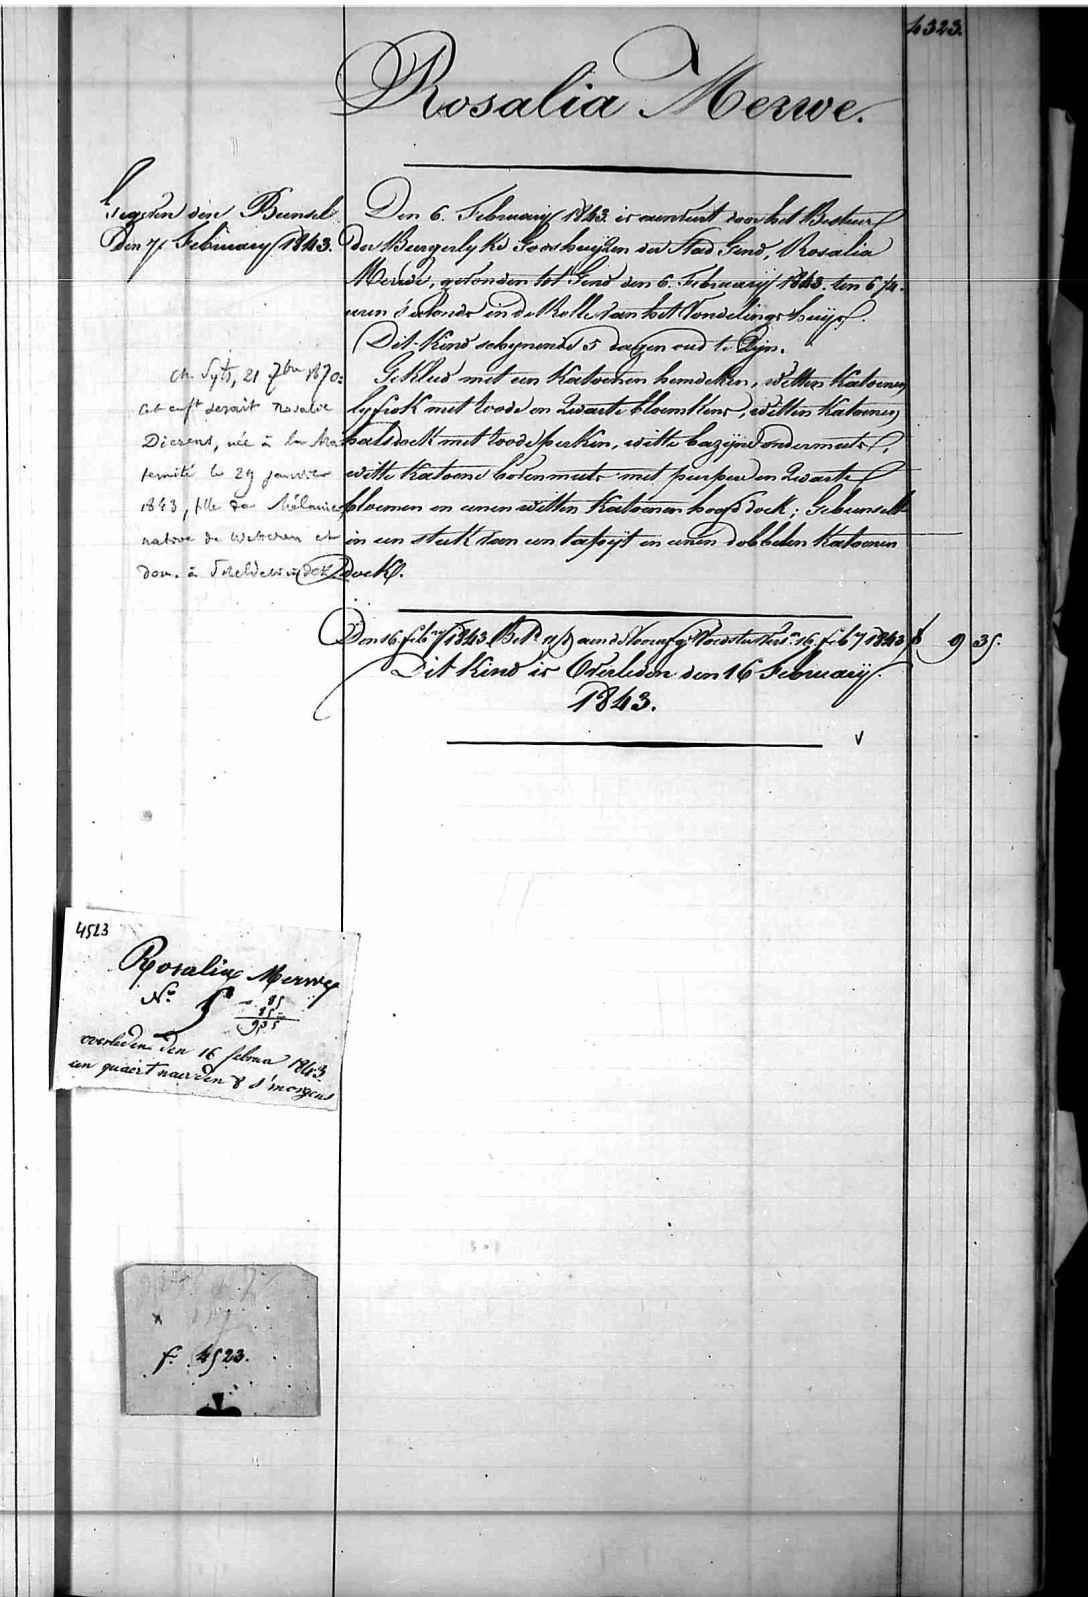 4523.
Rosalia Merwe.
Gegeven den Bunsel
den 7 february 1843.
Den 6. February 1843. is aenveirt door het Bestuer
der Burgerlyke Godshuyzen der Stad Gend, Rosalia
Merwe, gevonden tot Gend den 6. February 1843. ten 6 3/4
uren s'avonds in de Rolle van het Vondelingshuys.
Dit Kind schynende 5 dagen oud te Zyn.
Gekleed met een Katoenen hemdeken, witten Katoenen
lyfrok met roode en Zwarte bloemkens, witten Katoenen
halsdoek met roode perken, witte bazyne ondermuts,
witte Katoene bovenmuts met purpere en Zwarte
bloemen en eenen witten Katoenen hoofddoek; Gebunselt
in een stuk van een tapyt en eenen dobbelen Katoenen
doek.
21 7bre 1870:
Cet enft serait Rosalie
Dierens, née à la Ma
ternité le 29 janvier
1843, fille de Mélanie
native de Wetteren et
dom. à
Den 16 feb.y 1843 Bet. aen de 16. feb.y 1843 f. 9 35.
Dit Kind is Overleden den 16 February
1843.
V
4523
Rosalia Merwe
N°
85
85
935
overleden den 16 februa 1843
een quaert naer den 8 s'morgens
f. 4523.